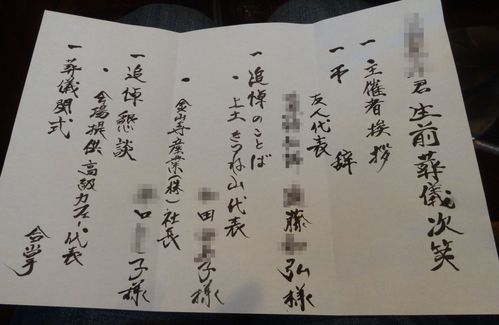 君 生前葬儀次笑
一 主催者挨拶
一 弔辞
友人代表
藤 弘様
一 追悼のことば
・上土きつね山代表
田 子様
・金山寺産業(株)社長
口 子様
一 追悼懇談
・会場提供 高級カフェー代表
一 葬儀閉式
合掌